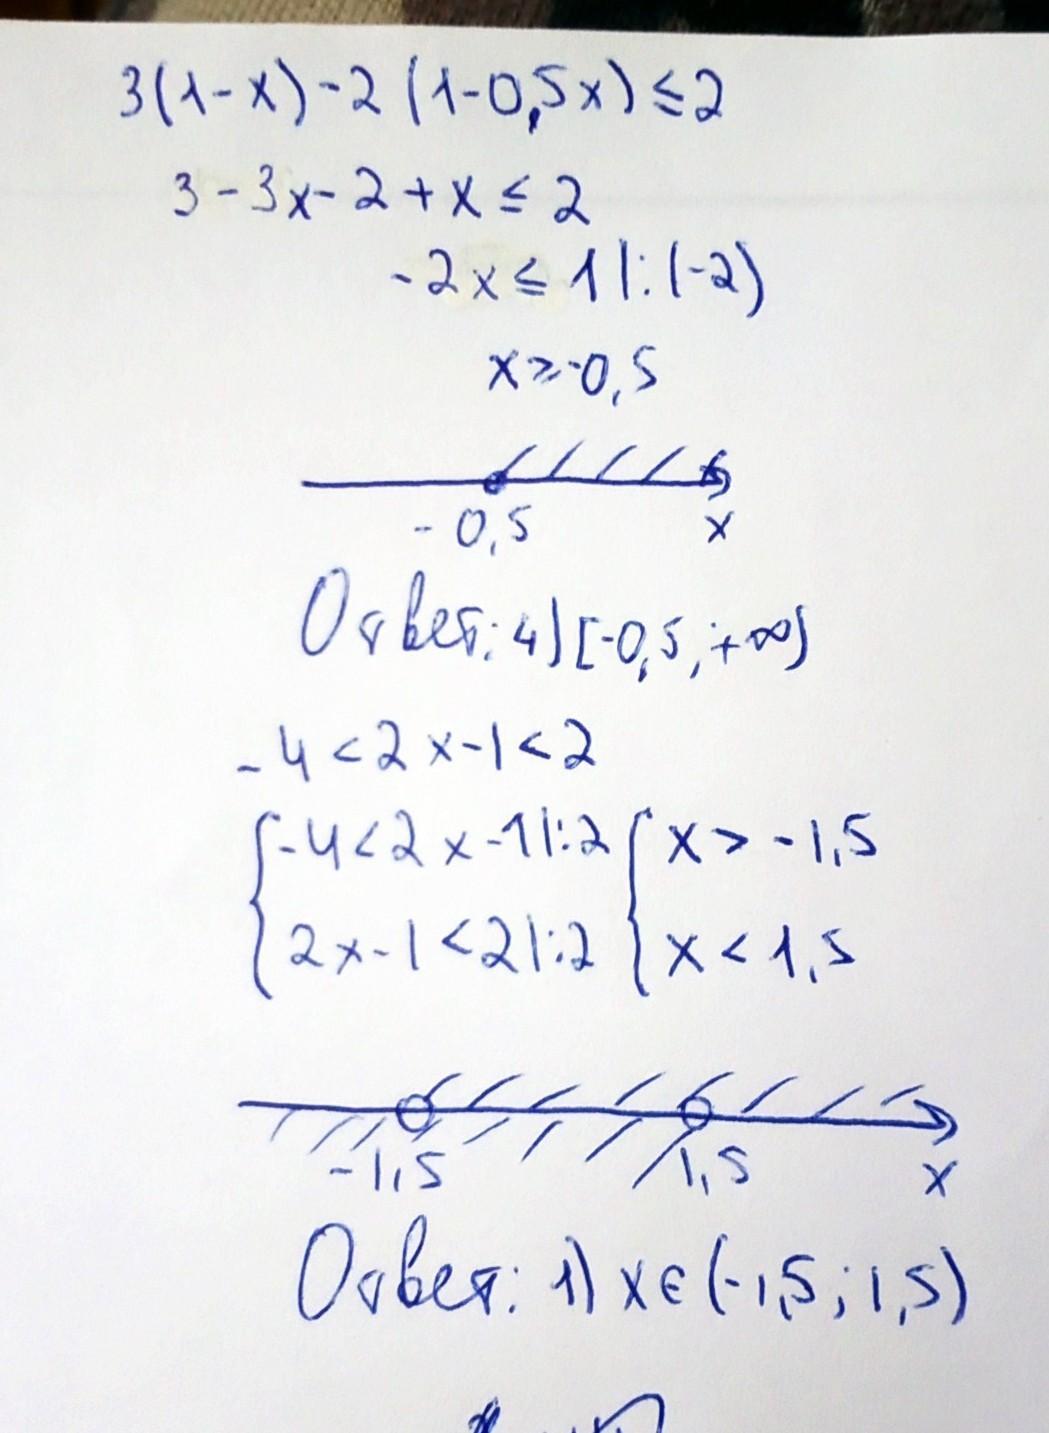 3(1-x)-2(1-0,5x)≤2
3-3x-2+x≤2
-2x≤1|:(-2)
x≥-0,5
-0,5 x
Ответ: 4) [-0,5;+∞)
-4<2x-1<2
{-4<2x-1|:2 {x>-1,5
{2x-1<2|:2 {x<1,5
-1,5 1,5 x
Ответ: 1) x∈(-1,5;1,5)